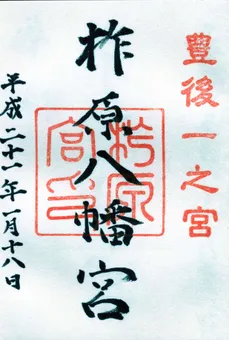 豊後一之宮
柞原八幡宮
平成二十一年一月十八日